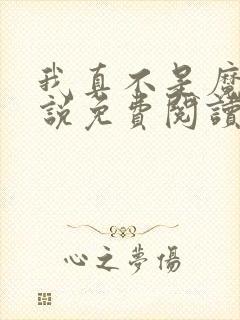 我真不是魔
說免費閱讀
心之夢傷